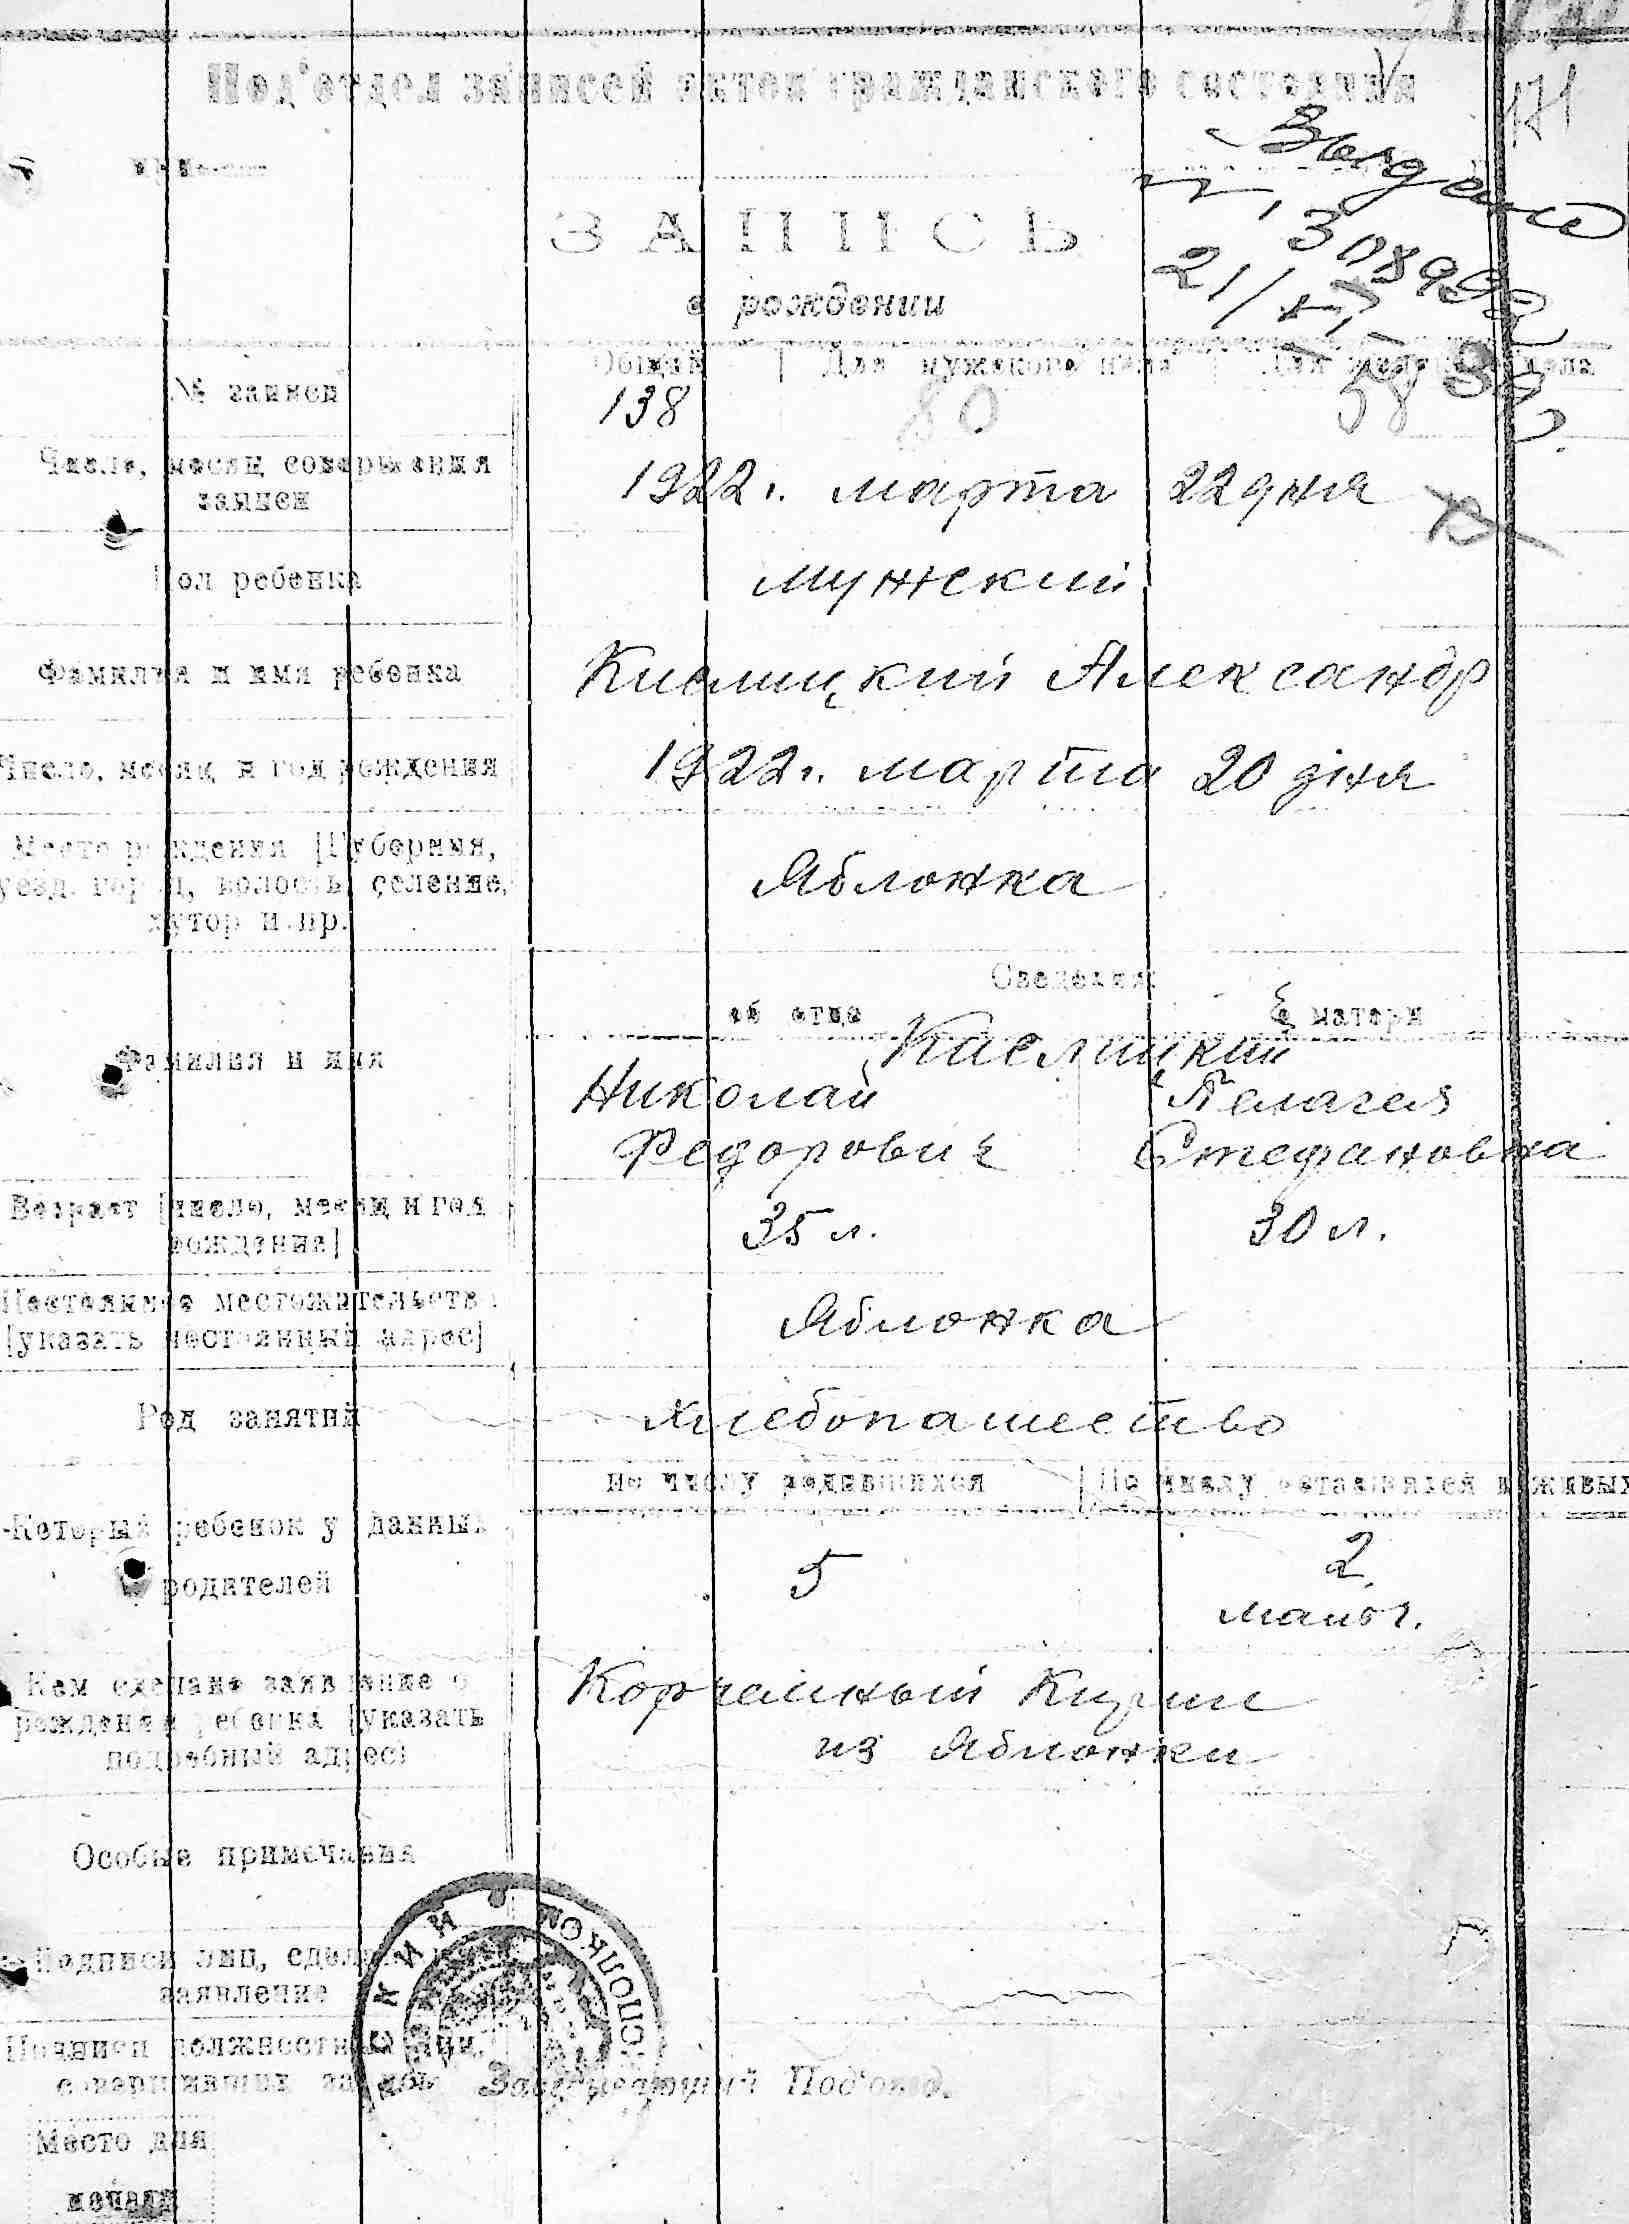 Под'отдел записей актов гражданского состояния
171
Выдано
ЗАПИСЬ
о рождении
21/
№ записи
Общий | Для мужского пола | Для женского пола
138 80 58
Число, месяц совершения
записи
1922 г. марта 22 дня
Пол ребенка
мужский
Фамилия и имя ребенка
Кислицкий Александр
Число, месяц и год рождения
1922 г. марта 20 дня
Место рождения [Губерния,
уезд, город, волость, селение,
хутор и пр.
Яблонка
Сведения
об отце
о матери
Фамилия и имя
Кислицкий
Николай Пелагея
Федорович Стефановна
Возраст [число, месяц и год
рождения]
35 л. 30 л.
Постоянное местожительство
[указать постоянный адрес]
Яблонка
Род занятий
Хлебопашество
по числу родившихся | По числу оставшихся в живых
Который ребенок у данных
родителей
5 2
мальч.
Кем сделано заявление о
рождении ребенка [указать
подробный адрес]
из Яблонки
Особые примечания
Подписи лиц, сдел
заявление
Подписи должностных лиц,
совершивших запись
Заведывающий Под'отд.
Место для
печати